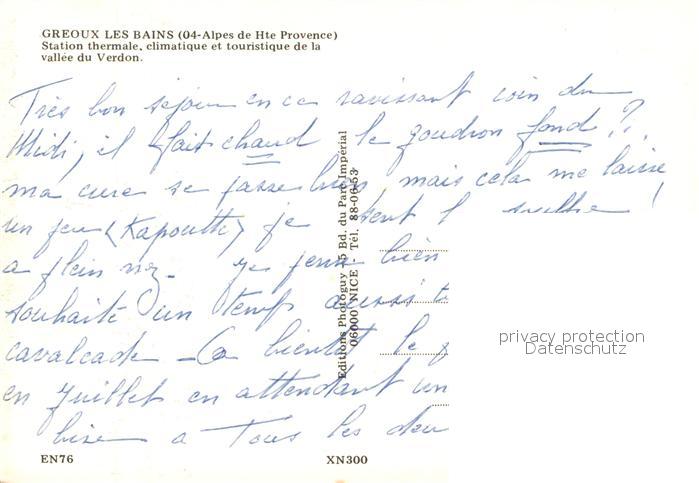 GREOUX LES BAINS (04-Alpes de Hte Provence)
Station thermale, climatique et touristique de la
vallée du Verdon.
Très bon séjour en ce ravissant coin du
Midi, il fait chaud le goudron fond ?.
ma cure se passe bien, mais cela me laisse
un peu (Kapoutt) je sent l !
a plein nez -
souhaité un temps aussi
cavalcade - a bientot le
en Juillet en attendant un
bise a Tous les deu
Editions Photoguy 25 Bd. du Parc Impérial
06000 NICE Tél. 88-06-53
privacy protection
Datenschutz
EN76
XN300